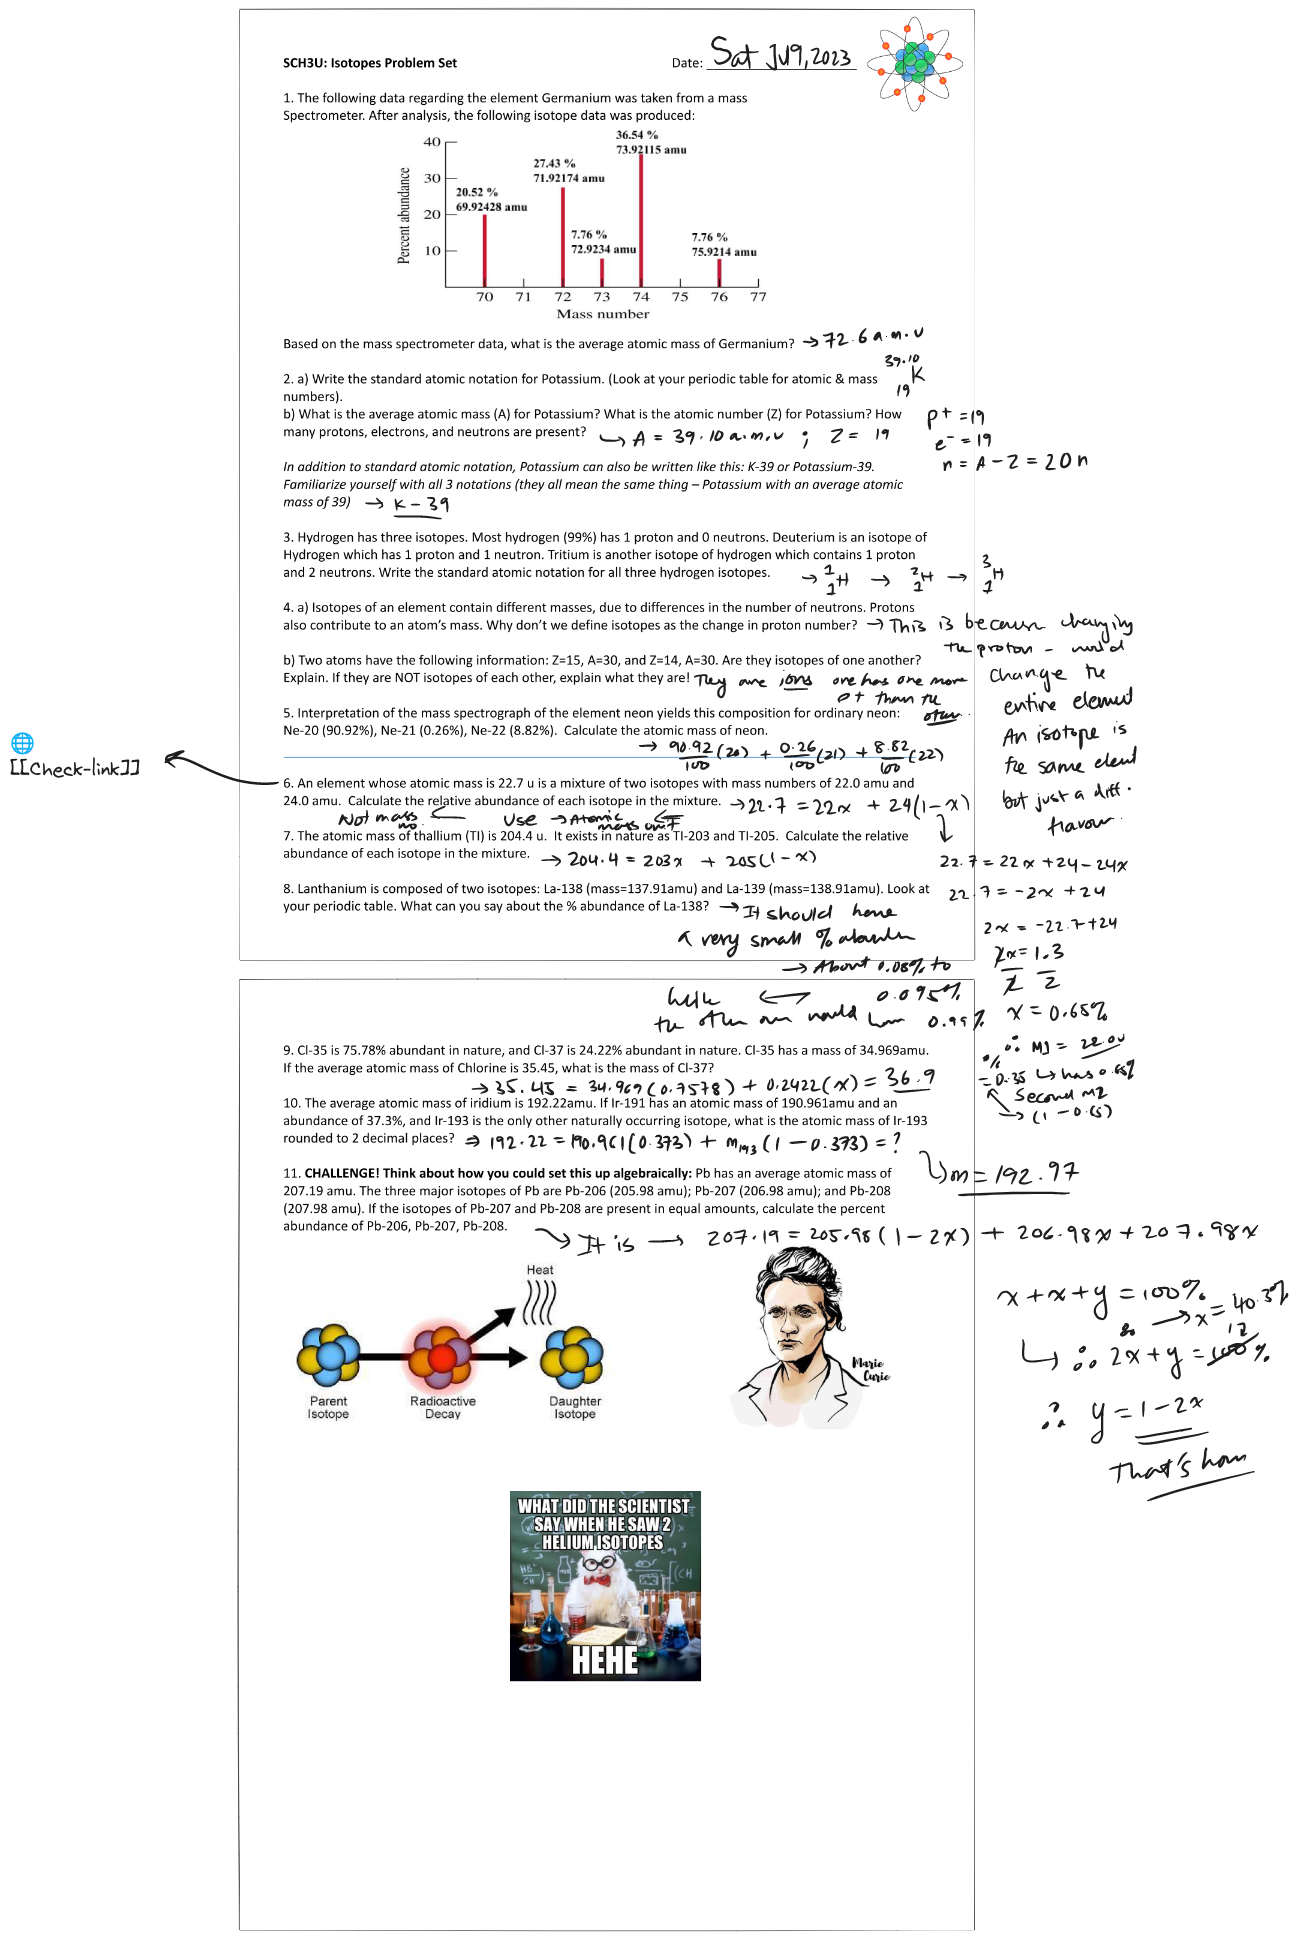 SCH3U: Isotopes Problem Set
Date: Sat Jul 9, 2023
1. The following data regarding the element Germanium was taken from a mass
Spectrometer. After analysis, the following isotope data was produced:
Percent abundance
40
30
20
10
20.52 %
69.92428 amu
27.43 %
71.92174 amu
7.76 %
72.9234 amu
36.54 %
73.92115 amu
7.76 %
75.9214 amu
70 71 72 73 74 75 76 77
Mass number
Based on the mass spectrometer data, what is the average atomic mass of Germanium? → 72.6 a.m.u
2. a) Write the standard atomic notation for Potassium. (Look at your periodic table for atomic & mass
numbers).
39.10
K
19
b) What is the average atomic mass (A) for Potassium? What is the atomic number (Z) for Potassium? How
many protons, electrons, and neutrons are present? → A = 39.10 a.m.u ; Z = 19
p+ = 19
e- = 19
n = A - Z = 20n
In addition to standard atomic notation, Potassium can also be written like this: K-39 or Potassium-39.
Familiarize yourself with all 3 notations (they all mean the same thing – Potassium with an average atomic
mass of 39) → K - 39
3. Hydrogen has three isotopes. Most hydrogen (99%) has 1 proton and 0 neutrons. Deuterium is an isotope of
Hydrogen which has 1 proton and 1 neutron. Tritium is another isotope of hydrogen which contains 1 proton
and 2 neutrons. Write the standard atomic notation for all three hydrogen isotopes. → 1 1 H → 2 1 H → 3 1 H
4. a) Isotopes of an element contain different masses, due to differences in the number of neutrons. Protons
also contribute to an atom's mass. Why don't we define isotopes as the change in proton number? → This is because changing
the proton - would
change the
entire element
An isotope is
the same element
but just a diff.
flavour.
b) Two atoms have the following information: Z=15, A=30, and Z=14, A=30. Are they isotopes of one another?
Explain. If they are NOT isotopes of each other, explain what they are! They are ions one has one more
p+ than the
other.
5. Interpretation of the mass spectrograph of the element neon yields this composition for ordinary neon:
Ne-20 (90.92%), Ne-21 (0.26%), Ne-22 (8.82%). Calculate the atomic mass of neon.
→ 90.92/100 (20) + 0.26/100 (21) + 8.82/100 (22)
[[Check-link]]
6. An element whose atomic mass is 22.7 u is a mixture of two isotopes with mass numbers of 22.0 amu and
24.0 amu. Calculate the relative abundance of each isotope in the mixture. → 22.7 = 22x + 24(1-x)
Not mass no. ← Use → Atomic mass unit ←
22.7 = 22x + 24 - 24x
22.7 = -2x + 24
2x = -22.7 + 24
2x = 1.3
2 2
x = 0.65%
∴ M1 = 22.0u
% = 0.35 ↳ has 0.65%
Second M2
→ (1 - 0.65)
7. The atomic mass of thallium (Tl) is 204.4 u. It exists in nature as Tl-203 and Tl-205. Calculate the relative
abundance of each isotope in the mixture. → 204.4 = 203x + 205(1-x)
8. Lanthanium is composed of two isotopes: La-138 (mass=137.91amu) and La-139 (mass=138.91amu). Look at
your periodic table. What can you say about the % abundance of La-138? → It should have
a very small %
→ About 0.08% to
0.095%
while ←
the other one would have 0.99%
9. Cl-35 is 75.78% abundant in nature, and Cl-37 is 24.22% abundant in nature. Cl-35 has a mass of 34.969amu.
If the average atomic mass of Chlorine is 35.45, what is the mass of Cl-37?
→ 35.45 = 34.969(0.7578) + 0.2422(x) = 36.9
10. The average atomic mass of iridium is 192.22amu. If Ir-191 has an atomic mass of 190.961amu and an
abundance of 37.3%, and Ir-193 is the only other naturally occurring isotope, what is the atomic mass of Ir-193
rounded to 2 decimal places? ⇒ 192.22 = 190.961(0.373) + m193 (1 - 0.373) = ?
↳ m = 192.97
11. CHALLENGE! Think about how you could set this up algebraically: Pb has an average atomic mass of
207.19 amu. The three major isotopes of Pb are Pb-206 (205.98 amu); Pb-207 (206.98 amu); and Pb-208
(207.98 amu). If the isotopes of Pb-207 and Pb-208 are present in equal amounts, calculate the percent
abundance of Pb-206, Pb-207, Pb-208.
It is → 207.19 = 205.98(1 - 2x) + 206.98x + 207.98x
x + x + y = 100%
so → x = 40.3%
↳ ∴ 2x + y = 100%
∴ y = 1 - 2x
That's how
Heat
Parent
Isotope
Radioactive
Decay
Daughter
Isotope
Marie
Curie
WHAT DID THE SCIENTIST
SAY WHEN HE SAW 2
HELIUM ISOTOPES
HEHE